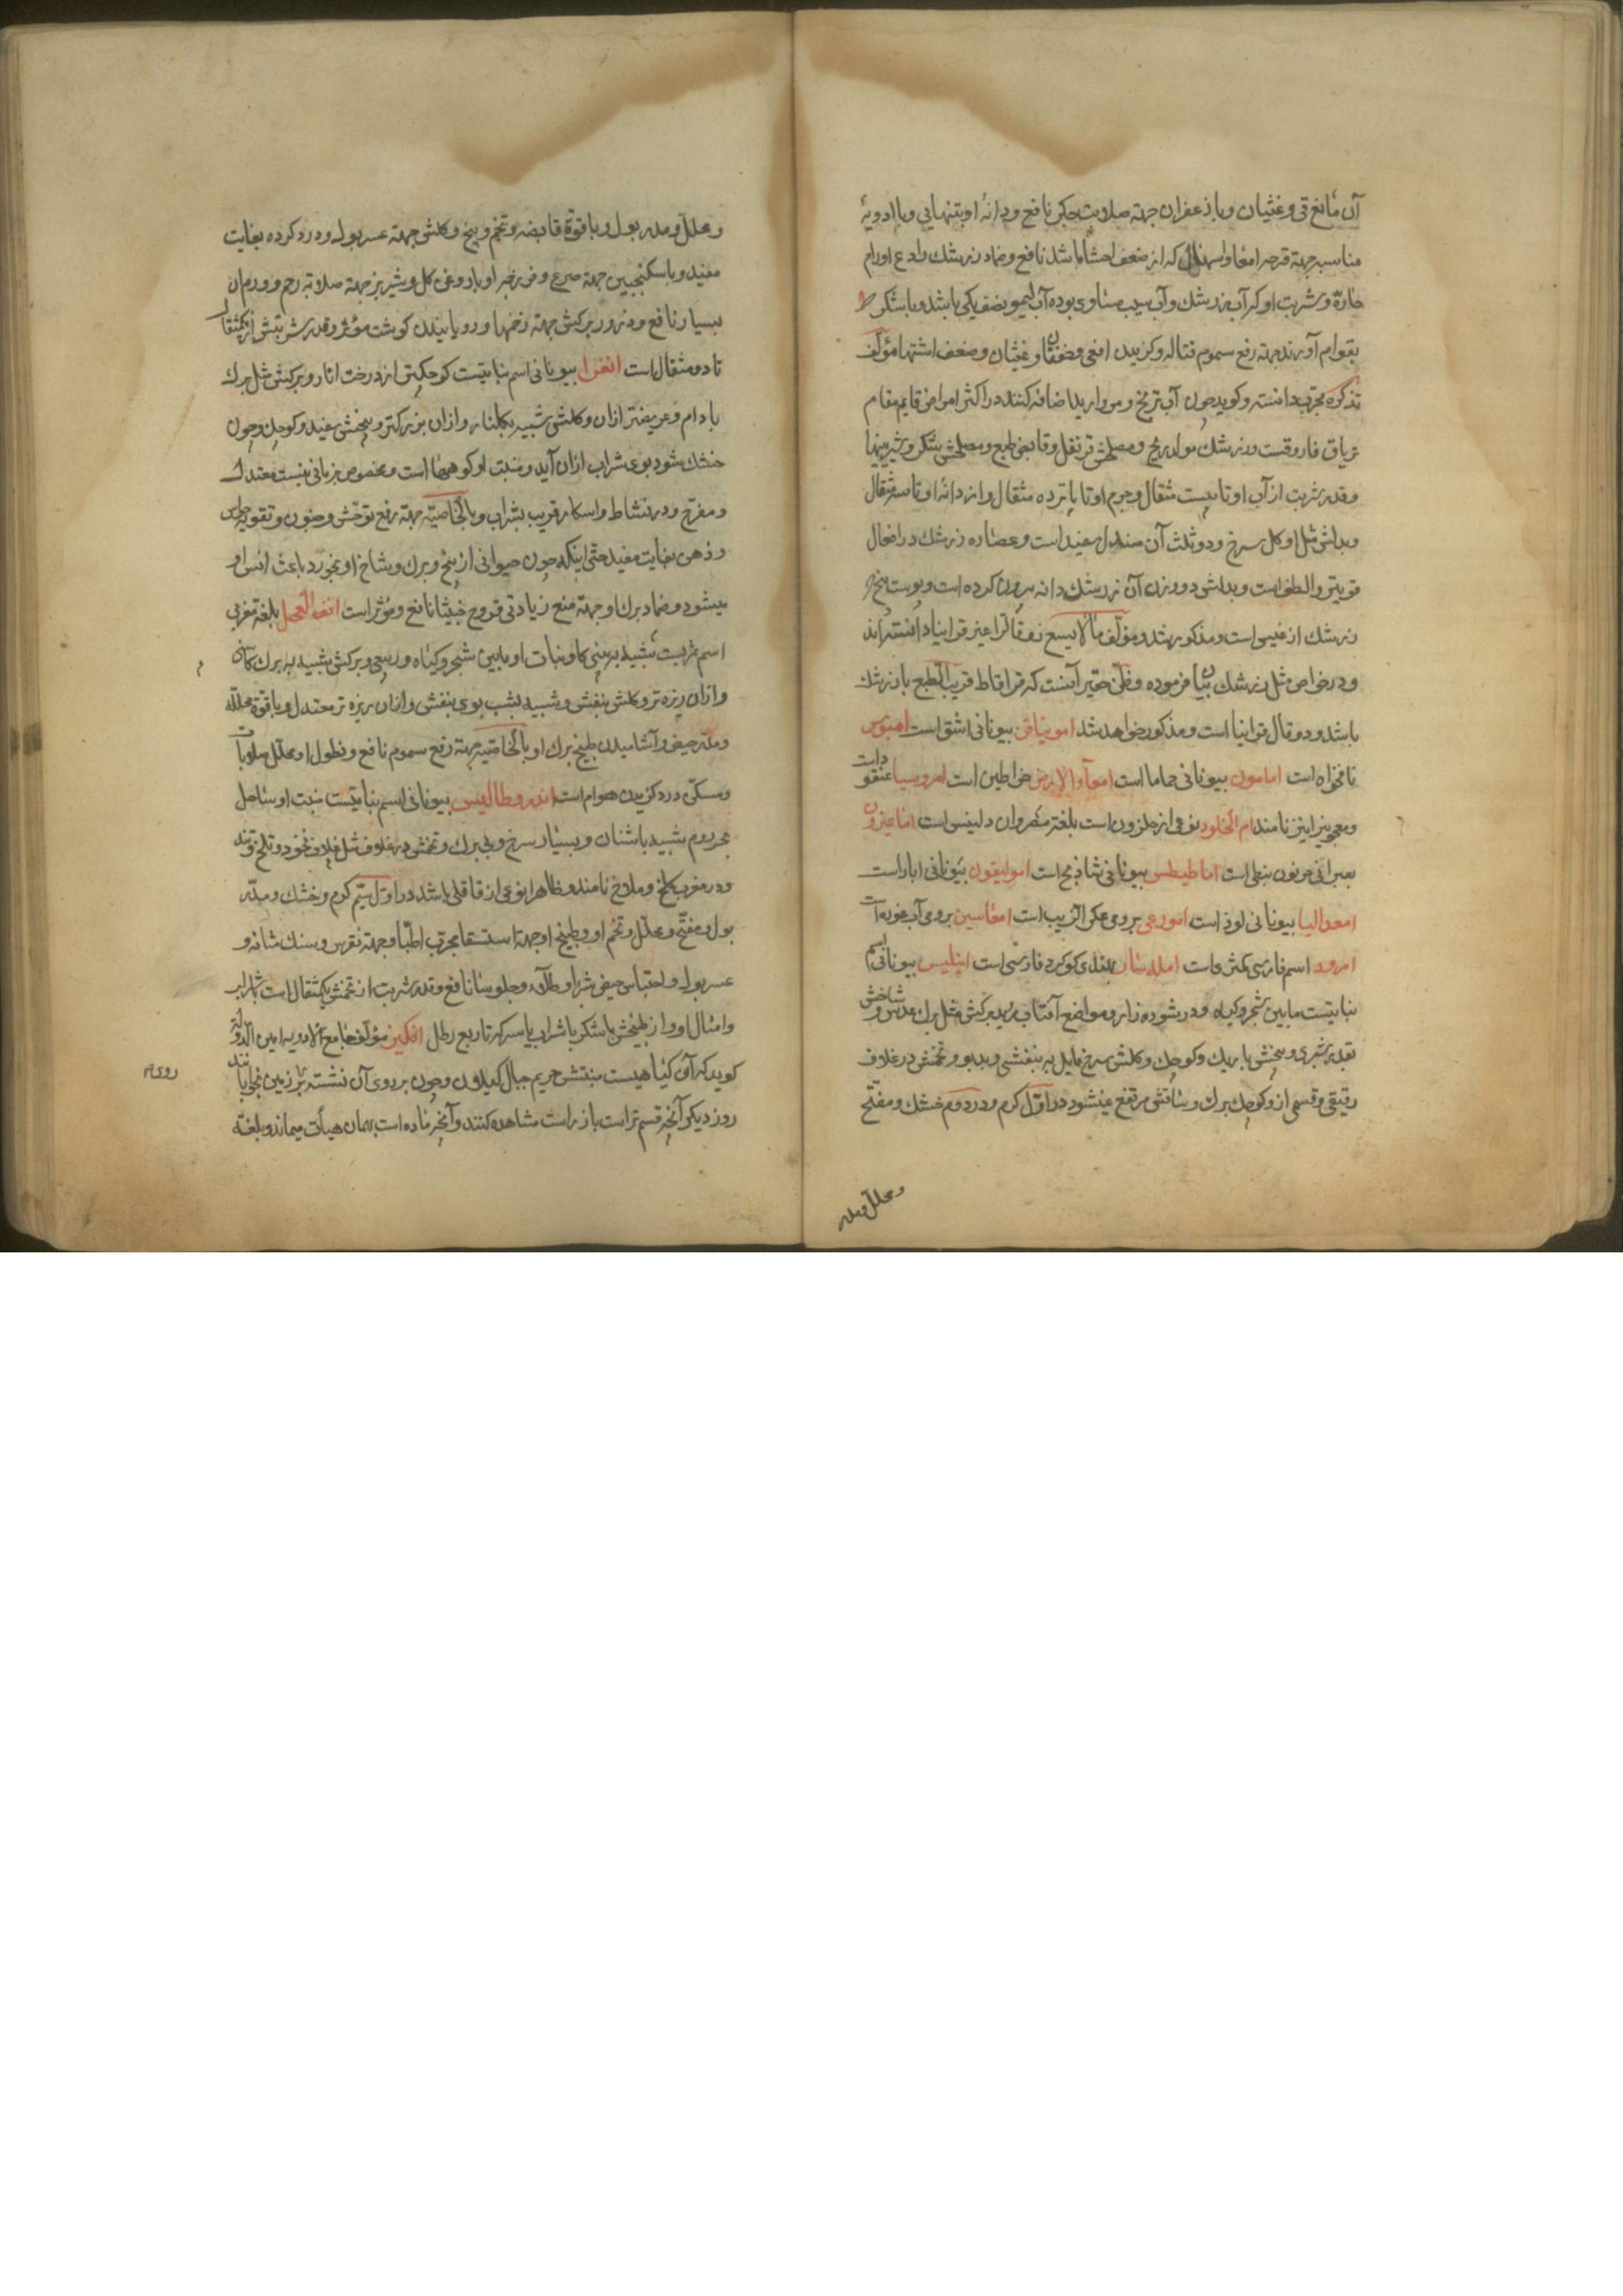 آن مانع قی و غثیان و با زعفران جهته صلابت جکر نافع و دانهٔ او بتنهایی و با ادویهٔ
مناسبه جهته قرحه امعا و اسهال که از ضعف احشا باشد نافع و ضماد زرشك رادع اورام
حارّه و شربت او که آب زرشك و آب سیب مساوی بوده آب لیمو نصف یکی باشد و با شکر
بقوام آورند جهته رفع سموم قتاله و کزیدن افعی و خفقان و غثیان و ضعف اشتها مؤلّف
تذکره مجرّب دانسته و کوید چون آب ترنج و مروارید اضافه کنند در اکثر امراض قایم مقام
تریاق فاروقست و زرشك مولد ریح و مصلحش قرنفل و قابض طبع و مصلحش شکر و شیرینیها
و قدر شربت از آب او تا بیست مثقال و جرم او تا پانزده مثقال و از دانهٔ او تا سه مثقال
و بدلش مثل او کل سرخ و دو ثلث آن صندل سفید است و عصاره زرشك در افعال
قویتر و الطف است و بدلش دو وزن آن زرشك دانه بیرون کرده است و پوست بیخ
زرشك ارغیس است و مذکور شد و مؤلّف مالایسع زوفالرا غیر قرانیا دانسته اند
و در خواص مثل زرشك بیان فرموده و ظنّ حقیر آنست که قراقاط قریب الطبع با زرشك
باشد و دوقال قرانیا است و مذکور خواهد شد امونیاقن بیونانی اشق است امیوس
نانخواه است امامون بیونانی حماما است امعآء الارض خراطین است امروسیا عنقو
و معجونیرا نیز نامند ام الخلود نوعی از حلزون است بلغة مصر و ان دلینس است
بعبرانی خرنوب نبطی است اماطیطس بیونانی شاذنج است امولیقون بیونانی ابار است
امعدالیا بیونانی لوز است امورعی برومی عکر الزیت است امفاسین برومی آب غوره است
امرود اسم فارسی کمثری است بهندی کوکرد فارسی است انبلیس بیونانی اسم
نباتیست مابین شجر و کیاه و در شوره زار و مواضع آفتاب روید برکش مثل برك عدس و شاخش
بقدر شبری و بیخش باریك و کوچك و کلش سرخ مایل به بنفشی و بدبو و تخمش در غلاف
رقیقی و قسمی ازو کوچك برك و ساقش مرتفع نمیشود در اوّل کرم و در دوم خشك و مفتّح
و محلّل و مدر
و محلّل و مدر بول و با قوّة قابضه و تخم و بیخ و کلش جهته عسر بول و درد کرده بغایت
مفید و با سکنجبین جهته صرع و فرزجهٔ او با روغن کل و شیر بز جهته صلابة رحم و ورم ان
بسیار نافع و ذرور برکش جهته زخمها و رویانیدن کوشت مؤثر و قدر شربتش از یکمثقال
تا دو مثقال است انغرا بیونانی اسم نباتیست کوچکتر از درخت انار و برکش مثل برك
بادام و عریضتر ازان و کلش شبیه بکلنار و ازان بزرکتر و بیخش سفید و کوچك و چون
خشك شود بوی شراب ازان آید و منبت او کوهها است و مخصوص بزمانی نیست معتدل
و مفرّح و در نشاط و اسکار قریب بشراب و بالخاصیّه جهته رفع توحّش و جنون و تقویة حواس
و ذهن بغایت مفید حتی اینکه چون حیوانی از بیخ و برك و شاخ او بخورد باعث انس او
میشود و ضماد برك او جهته منع زیادتی قروح خبیثه نافع و مؤثر است انف العجل بلغة مغربی
اسم ثمریست شبیه به بینی کاو و نبات او مابین شجر و کیاه و ربیعی و برکش شبیه به برك کتان
و ازان ریزه تر و کلش بنفش و شبیه بشب بوی بنفش و ازان ریزه تر معتدل و با قوّة محلّله
و مدّر حیض و آشامیدن طبیخ برك او بالخاصّیه جهته رفع سموم نافع و نطول او محلّل صلابات
و مسکّن درد کزیدن هوام است اندروطالیس بیونانی اسم نباتیست منبت او ساحل
بحر روم شبیه باشنان و بسیار سرخ و بی برك و تخمش در غلاف مثل غلاف نخود و تلخ و تند
و در مغرب کلخ و ملاح نامند و ظاهرا نوعی از قاقلی باشد در اوّل سیّم کرم و خشك و مدّر
بول و مفتّح و محلّل و تخم او و طبیخ او جهة استسقا مجرّب اطبّا و جهته نقرس و سنك مثانه و
عسر بول و احتباس حیض شربا و طلآء و جلوسا نافع و قدر شربت از تخمش یکمثقال است با شراب
و امثال او و از طبیخش با شکر یا شراب یا سرکه تا ربع رطل افکلین مؤلّف جامع الادویه امین الدّوله
کوید که آن کیاهیست منبتش حریم جبال کیلان و چون بر روی آن نشسته بر زمین بخوابانند
روز دیکر آنچه قسم تر است باز راست مشاهده کنند و آنچه ماده است بهمان هیأت میماند و بلغة